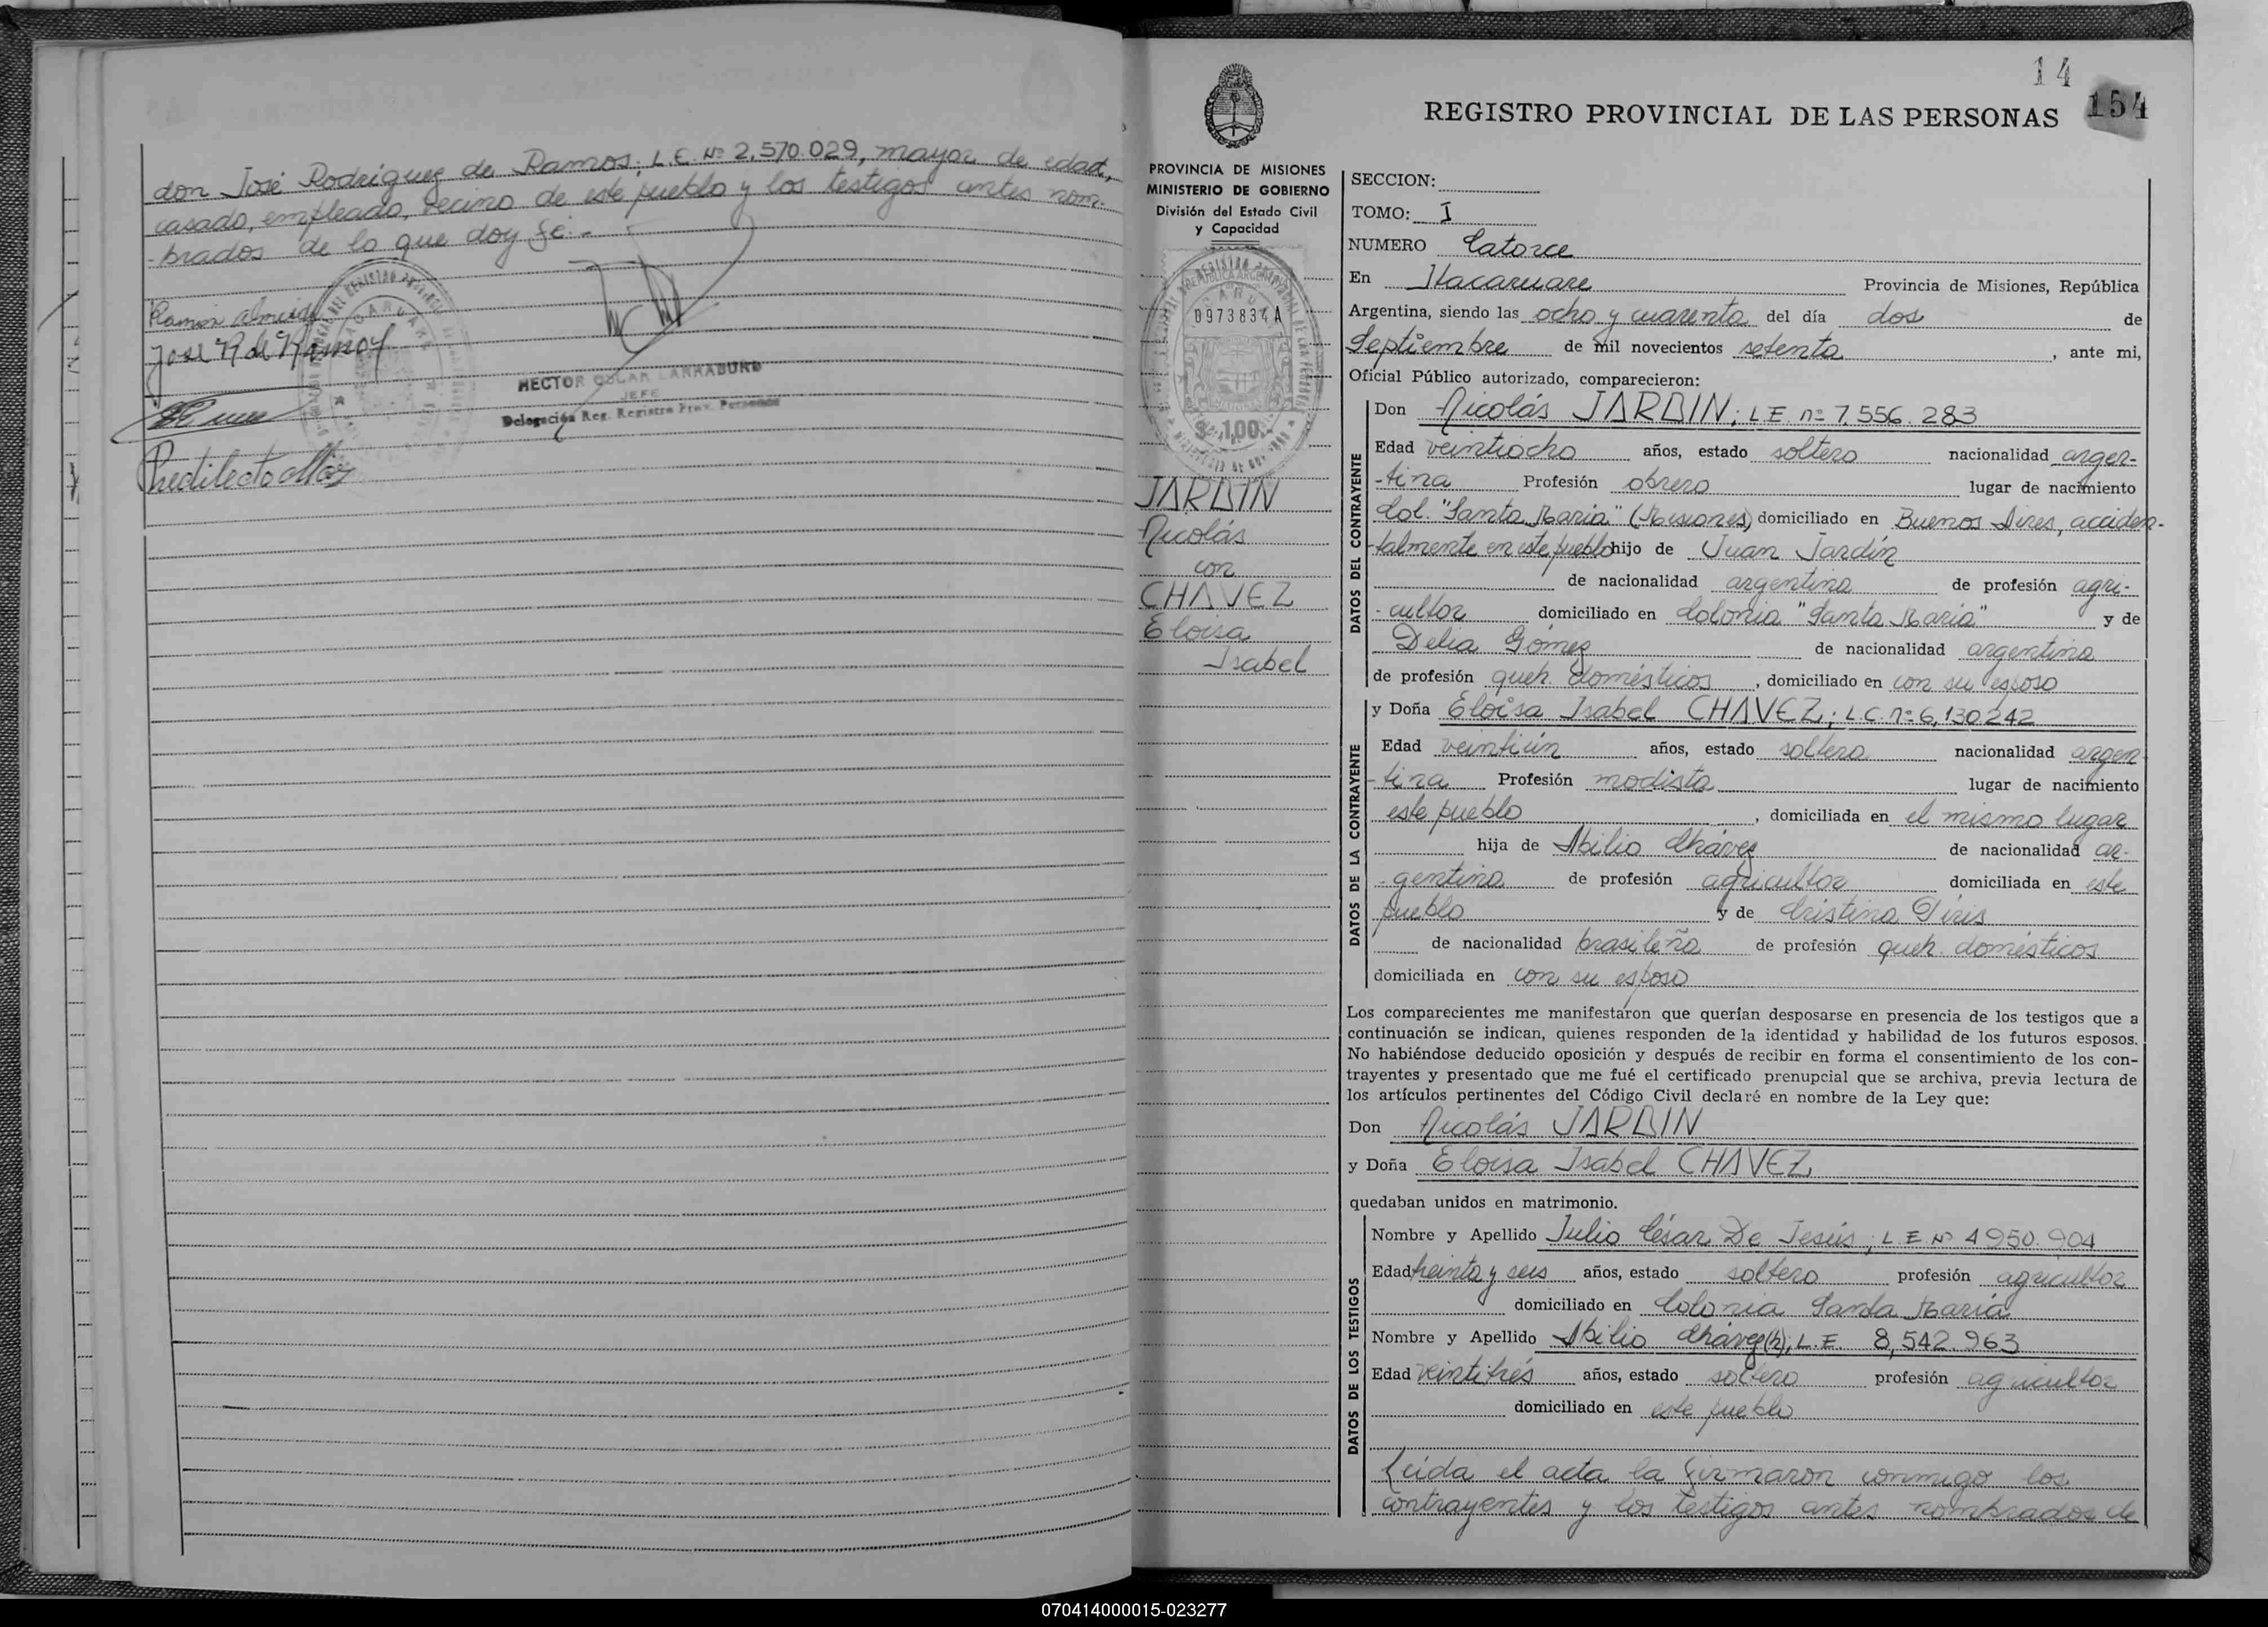 don José Rodríguez de Ramos; L.E. Nº 2.570.029, mayor de edad,
casado, empleado, vecino de este pueblo y los testigos antes nom-
-brados de lo que doy fé.-
José R de Ramos
HECTOR OSCAR LARRABURO
JEFE
Delegación Reg. Registro Prov. Personas
14
154
REGISTRO PROVINCIAL DE LAS PERSONAS
PROVINCIA DE MISIONES
MINISTERIO DE GOBIERNO
División del Estado Civil
y Capacidad
0973834 A
$ 1,00
JARDIN
Nicolás
con
CHAVEZ
Eloisa
Isabel
SECCION:
TOMO: I
NUMERO Catorce
En Itacaruare Provincia de Misiones, República
Argentina, siendo las ocho y cuarenta del día dos de
Septiembre de mil novecientos setenta, ante mi,
Oficial Público autorizado, comparecieron:
DATOS DEL CONTRAYENTE
Don Nicolás JARDIN; L.E. nº 7,556.283
Edad veintiocho años, estado soltero nacionalidad argen-
-tina Profesión obrero lugar de nacimiento
Col. "Santa María" (Misiones) domiciliado en Buenos Aires, acciden-
-talmente en este pueblo hijo de Juan Jardín
de nacionalidad argentina de profesión agri-
-cultor domiciliado en Colonia "Santa María" y de
Delia Gómez de nacionalidad argentina
de profesión queh. domésticos, domiciliado en con su esposo
DATOS DE LA CONTRAYENTE
y Doña Eloisa Isabel CHAVEZ; L.C. nº 6,130.242
Edad veintiún años, estado soltera nacionalidad argen
-tina Profesión modista lugar de nacimiento
este pueblo, domiciliada en el mismo lugar
hija de Abilio Chávez de nacionalidad ar-
-gentina de profesión agricultor domiciliada en este
pueblo y de Cristina Piris
de nacionalidad brasileña de profesión queh. domésticos
domiciliada en con su esposo
Los comparecientes me manifestaron que querían desposarse en presencia de los testigos que a
continuación se indican, quienes responden de la identidad y habilidad de los futuros esposos.
No habiéndose deducido oposición y después de recibir en forma el consentimiento de los con-
trayentes y presentado que me fué el certificado prenupcial que se archiva, previa lectura de
los artículos pertinentes del Código Civil declaré en nombre de la Ley que:
Don Nicolás JARDIN
y Doña Eloisa Isabel CHAVEZ
quedaban unidos en matrimonio.
DATOS DE LOS TESTIGOS
Nombre y Apellido Julio César De Jesús; L.E. Nº 4950.904
Edad treinta y seis años, estado soltero profesión agricultor
domiciliado en Colonia Santa María
Nombre y Apellido Abilio Chávez (h); L.E. 8,542.963
Edad veintitrés años, estado soltero profesión agricultor
domiciliado en este pueblo
Leída el acta la firmaron conmigo los
contrayentes y los testigos antes nombrados de
070414000015-023277